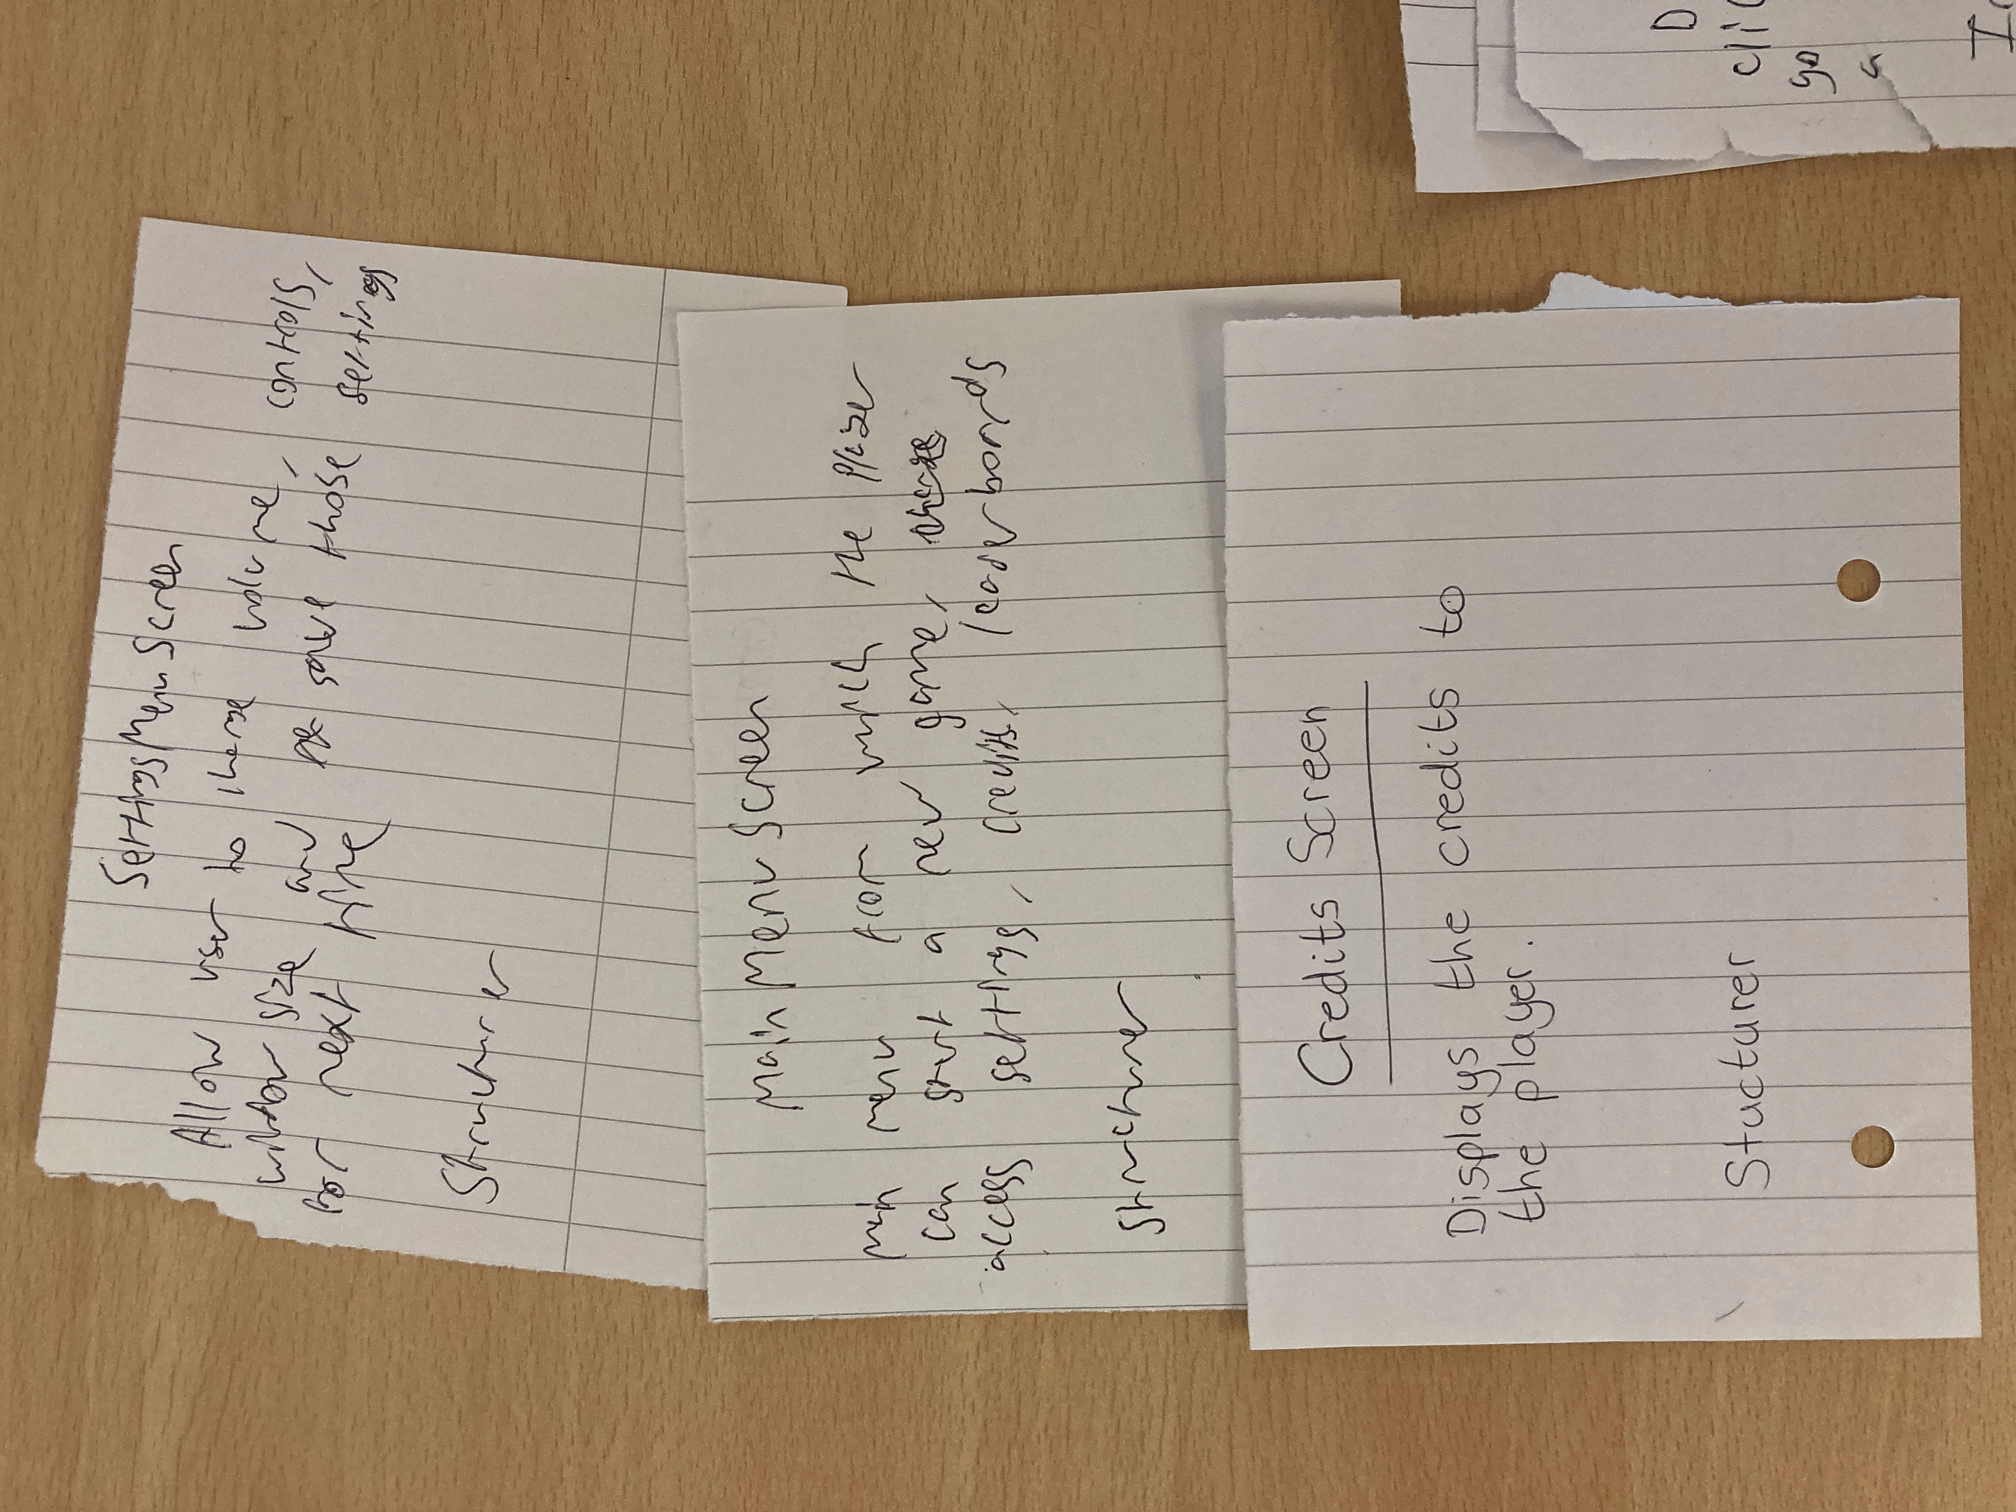 Settings Menu Screen
Allow user to change volume, controls,
window size and save those settings
for next time
Structurer
Main Menu Screen
main menu from which the player
can start a new game,
access settings, credits, leaderboards
Structurer
Credits Screen
Displays the credits to
the player.
Stucturer
D
clic
go
I